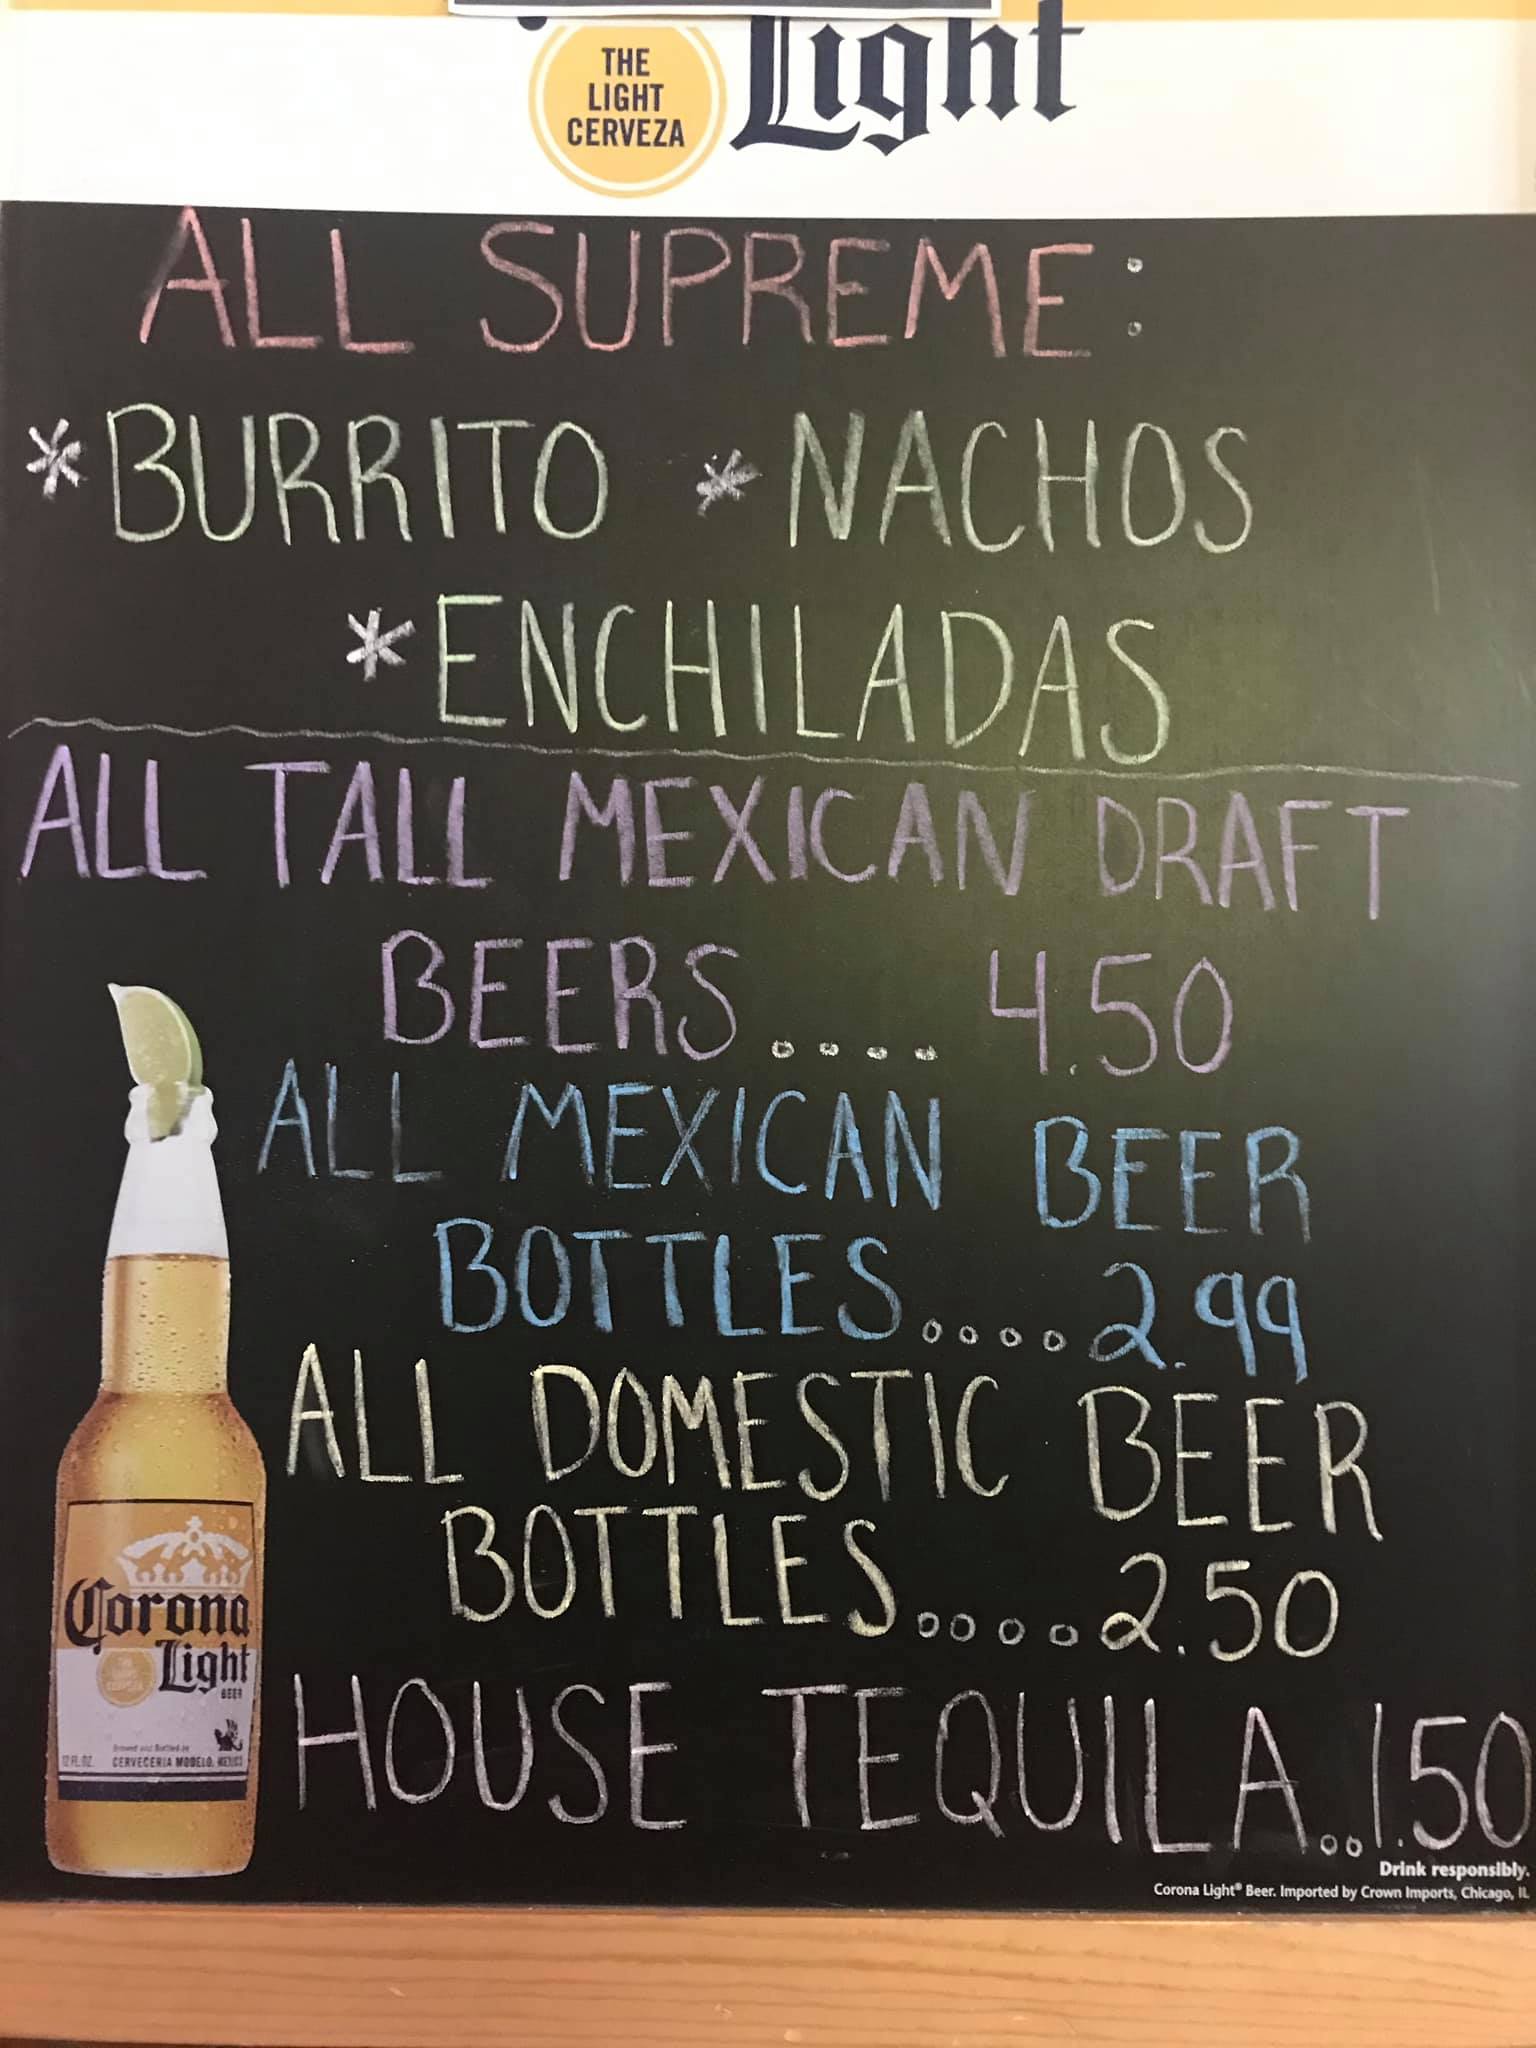 THE
LIGHT
CERVEZA
Light
ALL SUPREME:
*BURRITO *NACHOS
*ENCHILADAS
ALL TALL MEXICAN DRAFT
BEERS.... 4.50
ALL MEXICAN BEER
BOTTLES....2.99
ALL DOMESTIC BEER
BOTTLES....2.50
HOUSE TEQUILA..1.50
Corona
Light
BEER
Brewed and Bottled by
12 FL. OZ. CERVECERIA MODELO, MEXICO
Drink responsibly.
Corona Light® Beer. Imported by Crown Imports, Chicago, IL